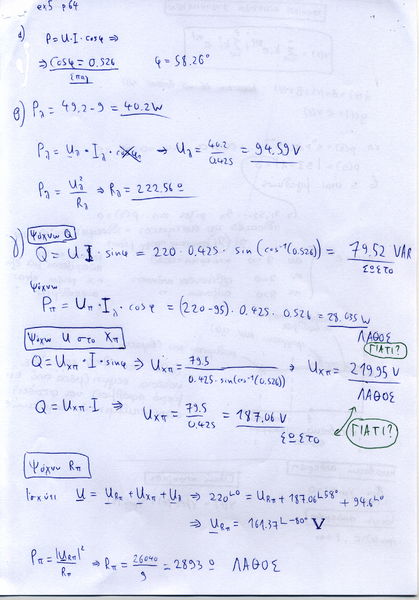 ex5 p64
α) P = U·I·cosφ ⇒
⇒ cosφ = 0.526 φ = 58.26°
(επαγ)
β) Pλ = 49.2 - 9 = 40.2W
Pλ = Uλ · Iλ · cosφ → Uλ = 40.2 / 0.425 = 94.59 V
Pλ = Uλ² / Rλ ⇒ Rλ = 222.56 Ω
γ) Ψάχνω Q
Q = U I · sinφ = 220 · 0.425 · sin (cos⁻¹(0.526)) = 79.52 VAR
ΣΩΣΤΟ
ψάχνω
Pπ = Uπ · Iλ · cosφ = (220-95) · 0.425 · 0.526 = 28.035 W
ΛΑΘΟΣ
ΓΙΑΤΙ?
Ψάχνω U στο Xπ
Q = Uxπ · I · sinφ ⇒ Uxπ = 79.5 / 0.425 · sin(cos⁻¹(0.526)) ⇒ Uxπ = 219.95 V
ΛΑΘΟΣ
Q = Uxπ · I ⇒ Uxπ = 79.5 / 0.425 = 187.06 V
ΣΩΣΤΟ
ΓΙΑΤΙ?
Ψάχνω Rπ
Ισχύει U = URπ + UXπ + Uλ ⇒ 220∠0 = URπ + 187.06∠58° + 94.6∠0
⇒ URπ = 161.37∠-80° V
Pπ = |URπ|² / Rπ ⇒ Rπ = 26040 / 9 = 2893 Ω ΛΑΘΟΣ